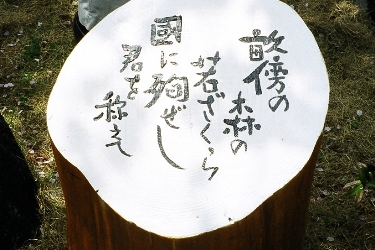 畝傍の
森の
若ざくら
國に殉ぜし
君を
称えて